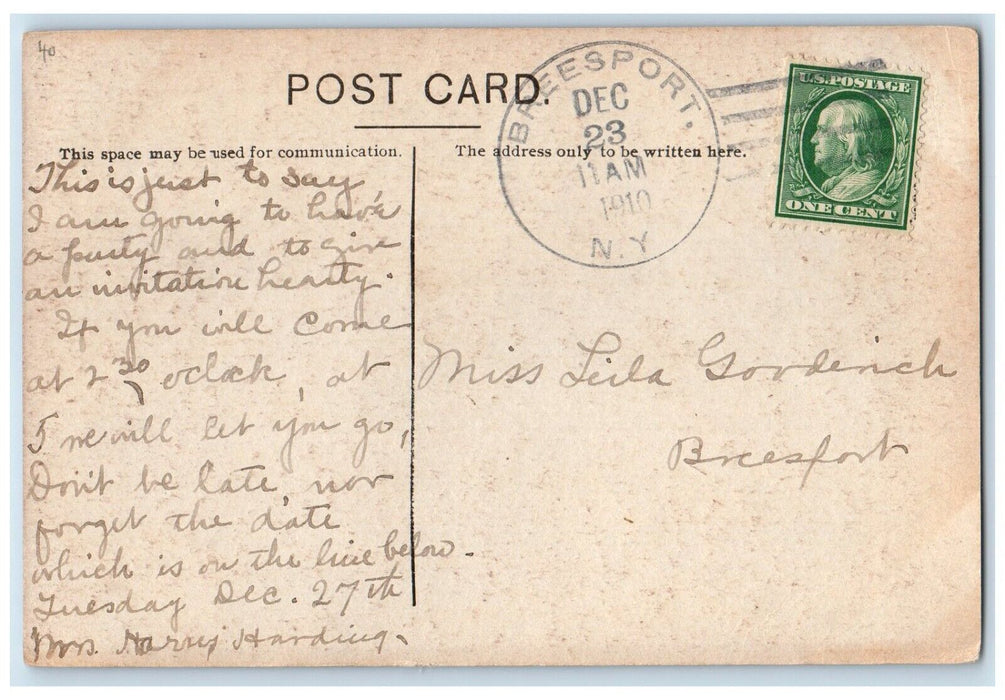 40
POST CARD.
BREESPORT,
DEC
23
11 AM
1910
N.Y
U.S. POSTAGE
ONE CENT
This space may be used for communication.
The address only to be written here.
This is just to say,
I am going to have
a party and to give
an invitation hearty.
If you will come
at 2 30 oclock, at
5 we will let you go,
Don't be late, nor
forget the date
which is on the line below.
Tuesday Dec. 27th
Mrs. Harry Harding.
Miss Leila Goodenich
Breesport